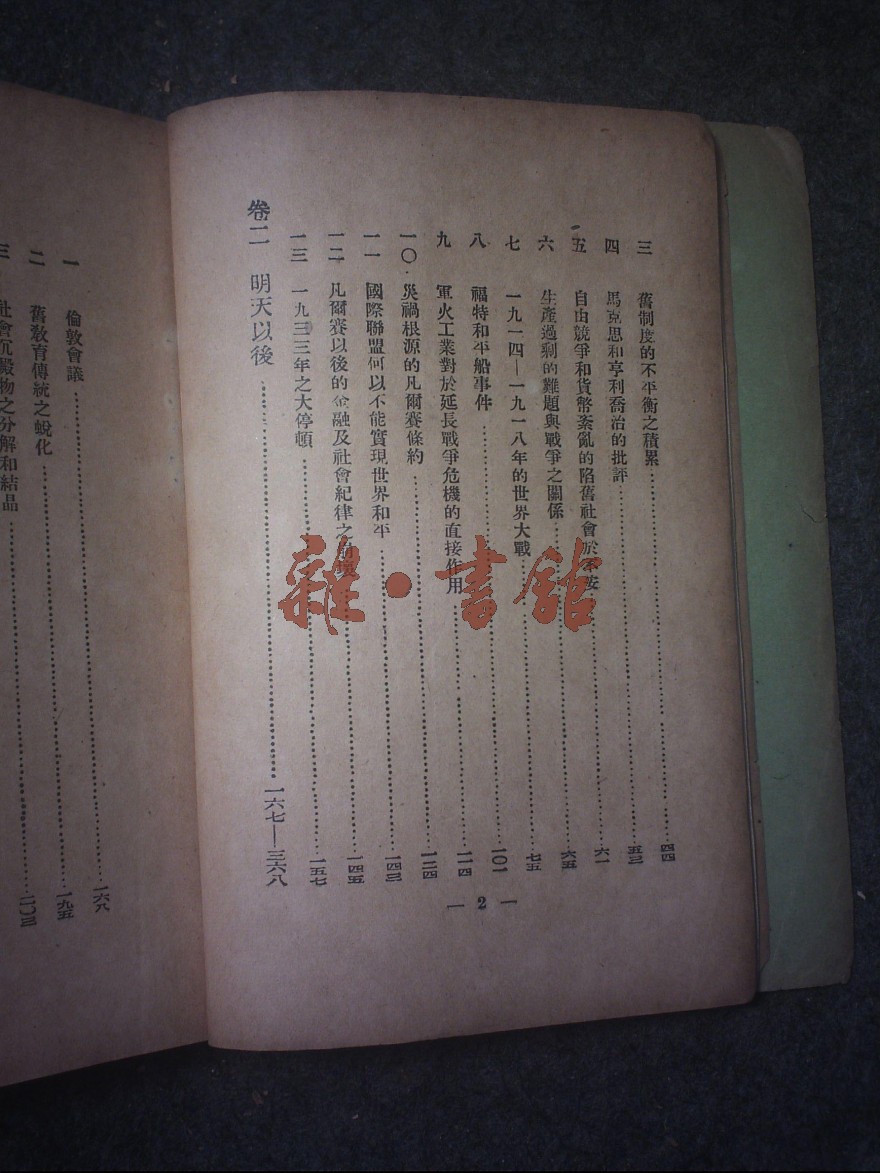 三 舊制度的不平衡之積累 四四
四 馬克思和亨利喬治的批評 五三
五 自由競爭和貨幣紊亂的陷舊社會於不安 六一
六 生產過剩的難題與戰爭之關係 六五
七 一九一四—一九一八年的世界大戰 七五
八 福特和平船事件 一〇一
九 軍火工業對於延長戰爭危機的直接作用 一一四
一〇 災禍根源的凡爾賽條約 一二四
一一 國際聯盟何以不能實現世界和平 一四三
一二 凡爾賽以後的金融及社會紀律之崩壞 一四五
一三 一九三三年之大停頓 一五七
卷二 明天以後 一六七—三六八
— 2 —
一 倫敦會議 一六八
二 舊教育傳統之蛻化 一九五
三 社會沉殿物之分解和結晶 二〇三
雜·書館